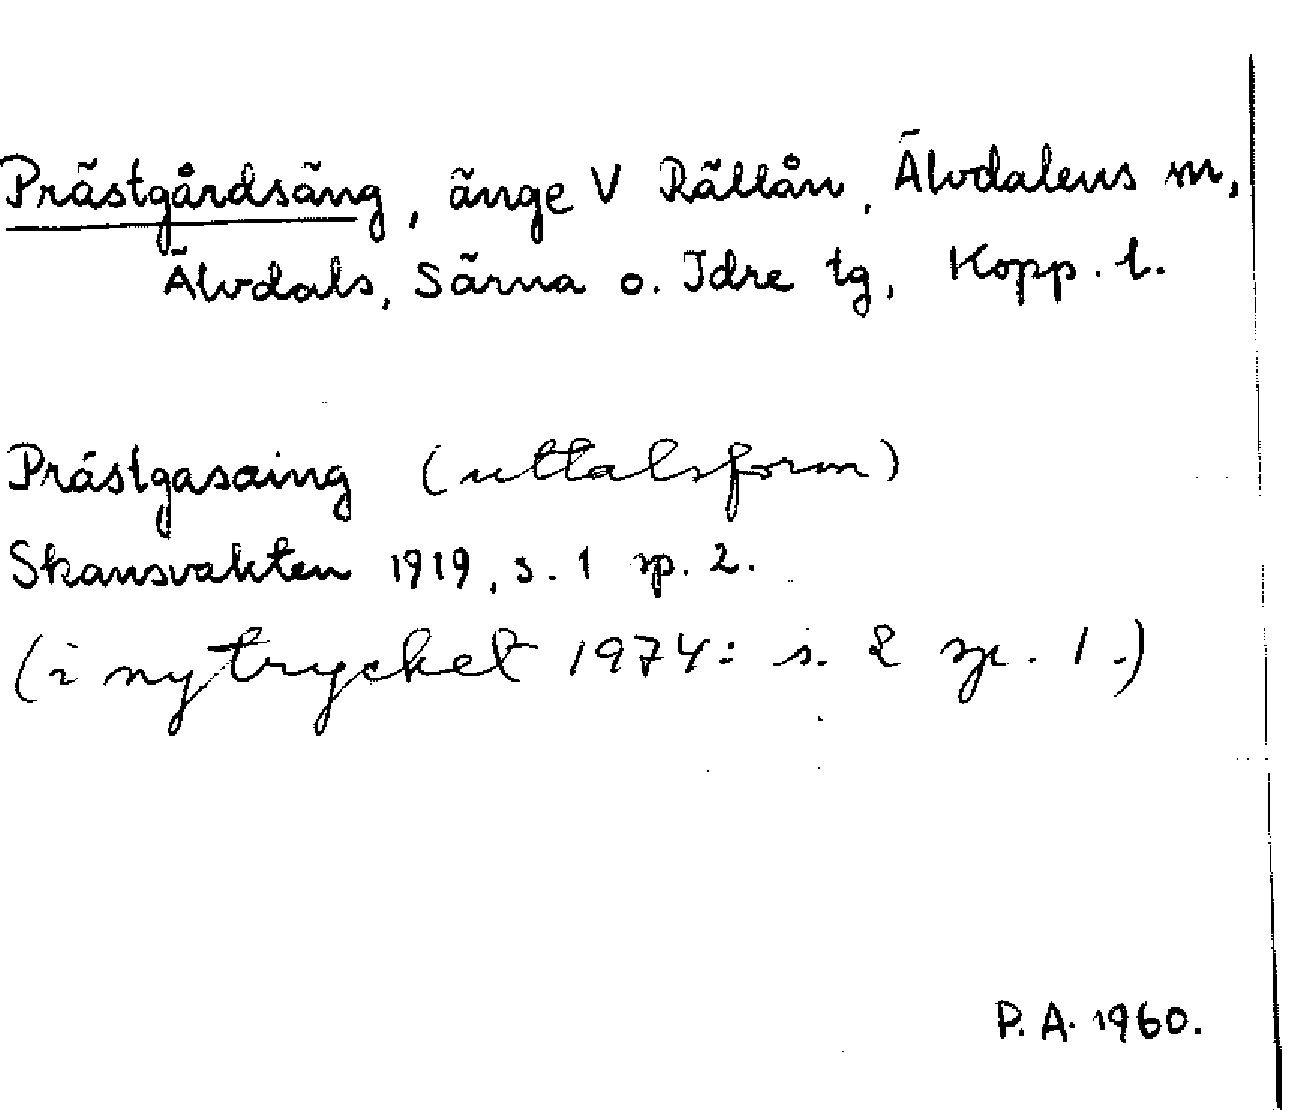 Prästgårdsäng, änge V Rällån, Älvdalens sn,
Älvdals, Särna o. Idre tg, Kopp. l.
Prästgasaing (uttalsform)
Skansvakten 1919, s. 1 sp. 2.
(i nytrycket 1974: s. 2 sp. 1.)
P. A. 1960.